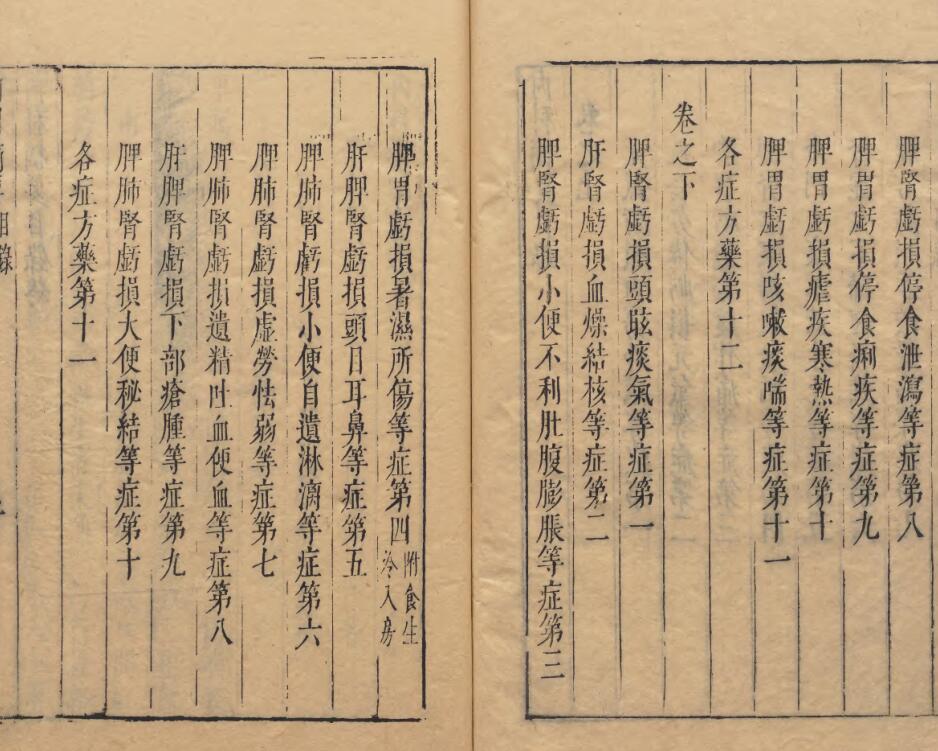 脾腎虧損停食泄瀉等症第八
脾胃虧損停食痢疾等症第九
脾胃虧損瘧疾寒熱等症第十
脾胃虧損咳嗽痰喘等症第十一
各症方藥第十二
卷之下
脾腎虧損頭眩痰氣等症第一
肝腎虧損血燥結核等症第二
脾腎虧損小便不利肚腹膨脹等症第三
脾胃虧損暑濕所傷等症第四附食生冷入房
肝脾腎虧損頭目耳鼻等症第五
脾肺腎虧損小便自遺淋漓等症第六
脾肺腎虧損虛勞怯弱等症第七
脾肺腎虧損遺精吐血便血等症第八
肝脾腎虧損下部瘡腫等症第九
脾肺腎虧損大便秘結等症第十
各症方藥第十一